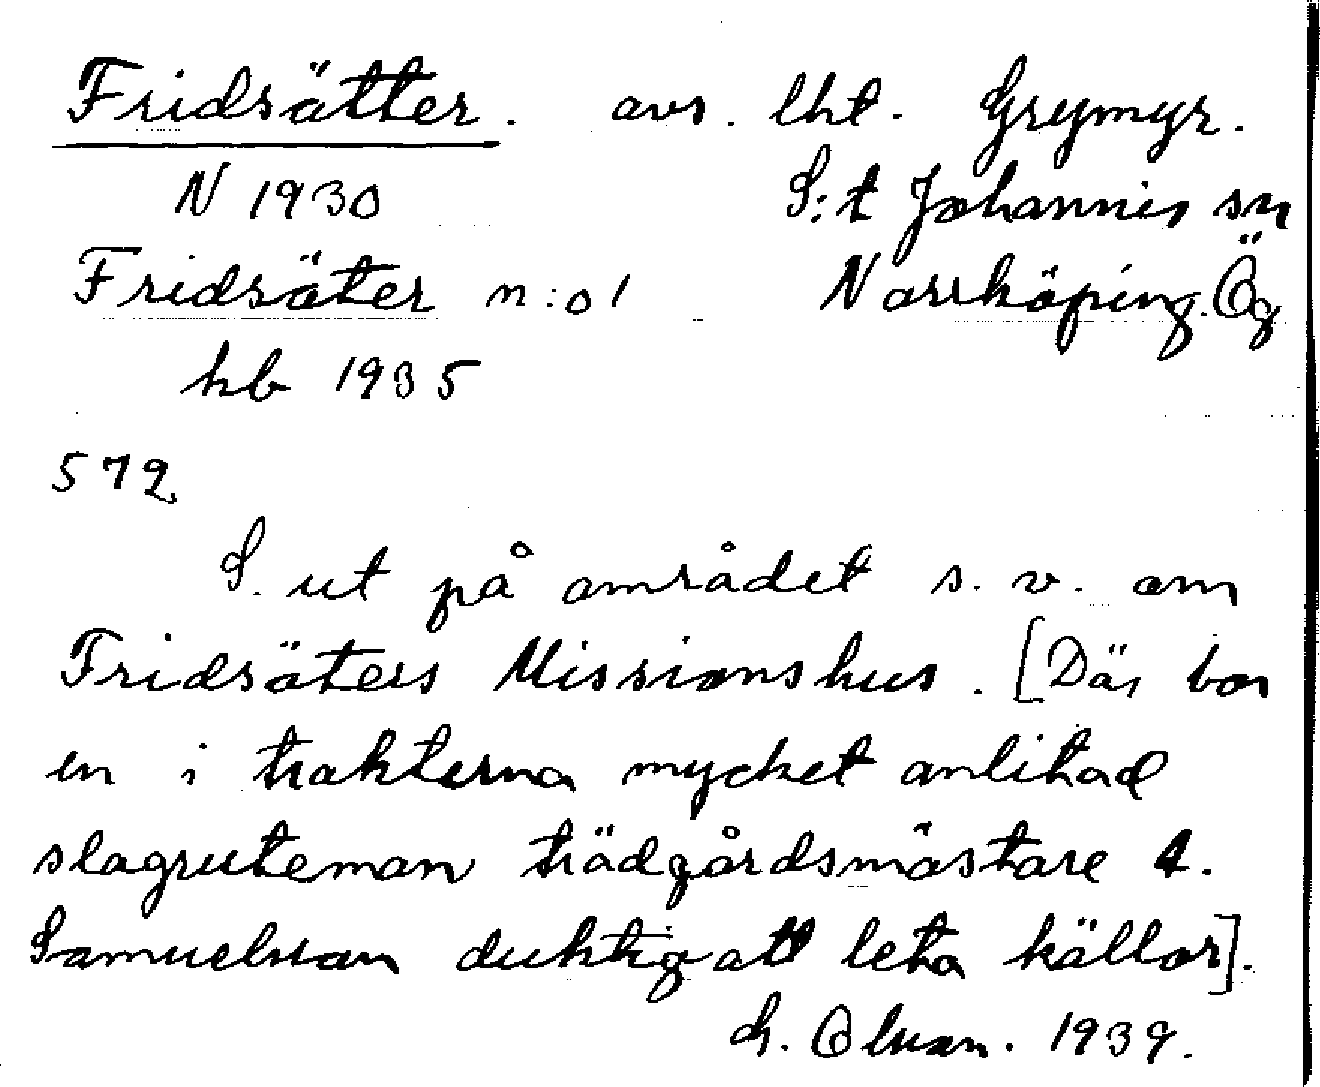 Fridsätter. avs. lht. Grymyr.
N 1930 S:t Johannis sn
Fridsäter n:o 1 Norrköping. Ög
kb 1935
572
S. ut på området s. v. om
Fridsäters Missionshus. [Där bor
en i trakterna mycket anlitad
slagruteman trädgårdsmästare A.
Samuelsson duktig att leta källor].
G. Olsson. 1939.